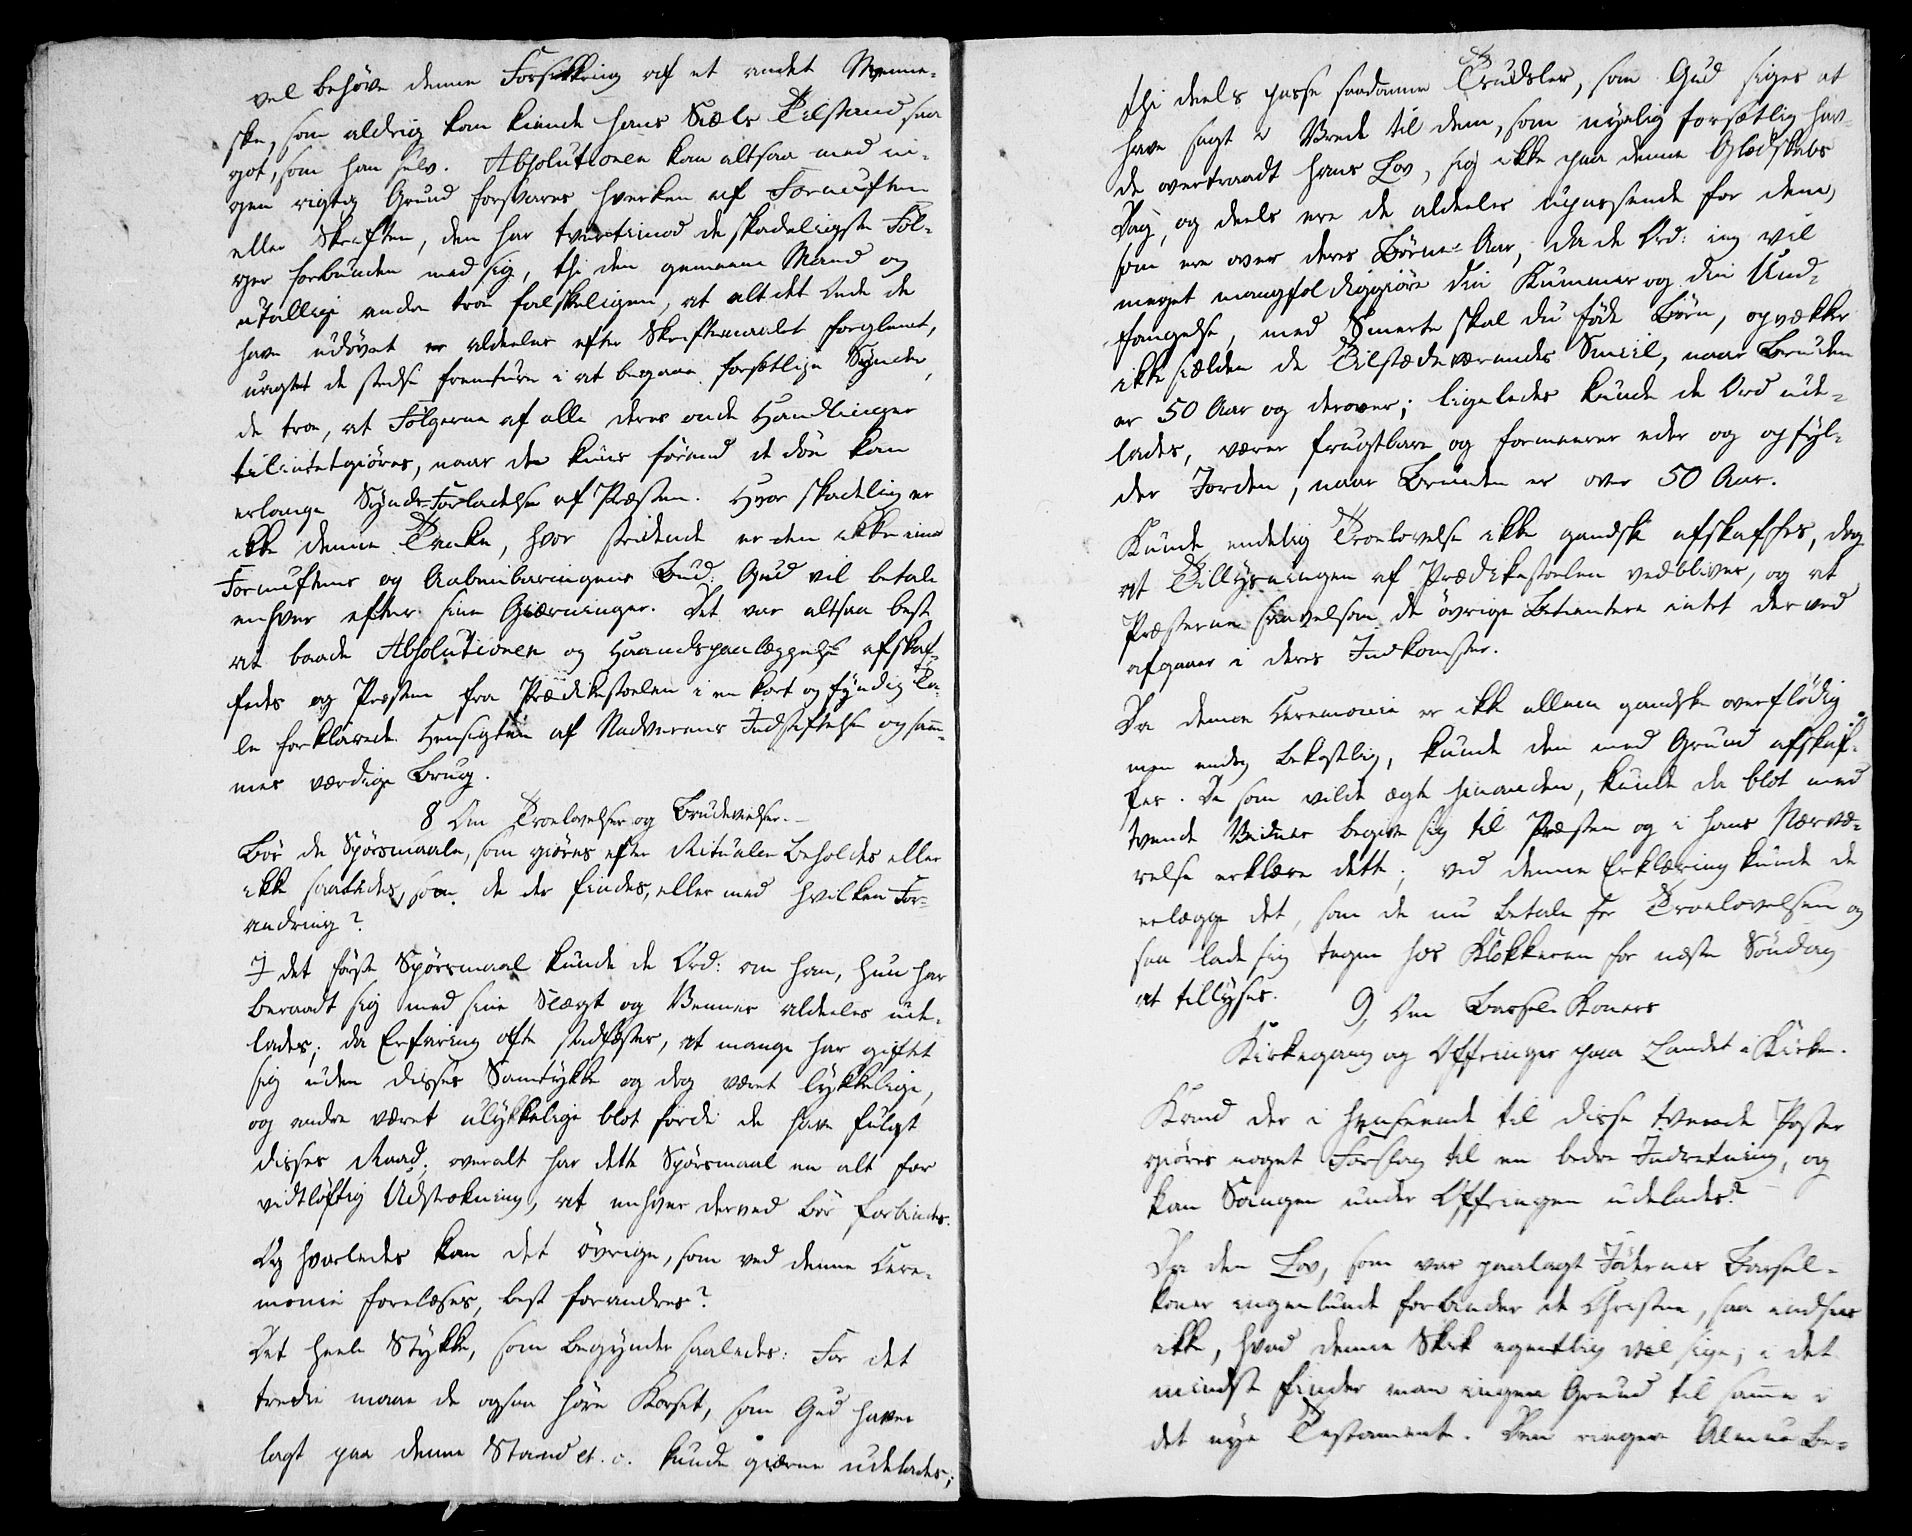 vel behöve denne Forsikkring af et andet Menne-
ske, som aldrig kan kiende hans Siæls Tilstand saa
got, som han selv. Absolutionen kan altsaa med in-
gen rigtig Grund forsvares hverken af Fornuften
eller Skriften, den har tvertimod de skadeligste Föl-
ger forbunden med sig, thi den gemeene Mand og
utallige andre troe falskeligen, at alt det Onde de
have udövet er aldeeles efter Skriftemaalet forglemt,
uagtet de stedse fremture i at begaae forsætlige Synder,
de troe, at Fölgerne af alle deres onde Handlinger
tilintetgiöres, naar de kuns förend de döe kan
erlange Synds-Forladelse af Præsten. Hvor skadelig er
ikke denne Tanke, hvor stridende er den ikke imod
Fornuftens og Aabenbaringens Bud: Gud vil betale
enhver efter sine Gierninger. Det var altsaa best
at baade Absolutionen og Haandspaalæggelse afskaf-
fedes og Præsten fra Prædikestoelen i en kort og fyndig Ta-
le forklarede Hensigten af Nadverens Indstiftelse og sam-
mes værdige Brug.
8 Om Troelovelser og Brudevielser.
Bör de Spörsmaale, som giöres efter Ritualen beholdes eller
ikke saaledes, som de der findes, eller med hvilken For-
andring?
I det förste Spörsmaal kunde de Ord: om han, hun har
beraadt sig med sine Slægt og Venner aldeeles ude-
lades; da Erfaring ofte stadfæster, at mange har giftet
sig uden disses Samtykke og dog været lykkelige,
og andre været ulykkelige blot fordi de have fulgt
disses Raad; overalt har dette Spörsmaal en alt for
vidtlöftig Udstrækning, at enhver derved bör forbindes.
Og hvorledes kan det övrige, som ved denne Cere-
monie forelæses, best forandres?
Det heele Stykke, som begynder saaledes: For det
tredie maae de ogsaa höre Korset, som Gud haver
lagt paa denne Stand et. c. kunde gierne udelades;
thi deels passe saadanne Trudsler, som Gud siges at
have sagt i Vrede til dem, som nyelig forsætlig hav-
de overtraadt hans Lov, sig ikke paa denne Glædskabs
Dag, og deels ere de aldeeles upassende for dem,
som ere over deres Börne-Aar, da de Ord: ieg vil
meget mangfoldiggiöre din Kummer og din Und-
fangelse, med Smerte skal du föde Börn, opvækker
ikke sielden de Tilstædeværendes Smiil, naar Bruden
er 50 Aar og derover; ligeledes kunde de Ord ude-
lades, værer frugtbare og formeerer eder og opfyl-
der Jorden, naar Bruden er over 50 Aar.
Kunde endelig Troelovelse ikke gandske afskaffes, dog
at Tillysningen af Prædikestoelen vedbliver, og at
Præsterne saavelsom de övrige Betientere intet derved
afgaaer i deres Indkomster.
Da denne Ceremonie er ikke alleene gandske overflödig
men endog bekostelig, kunde den med Grund afskaf-
fes. De som vilde ægte hinanden, kunde da blot med
tvende Vidner begive sig til Præsten og i hans Nærvæ-
relse erklære dette; ved denne Erklæring kunde de
erlægge det, som de nu betale for Troelovelsen og
saa lade sig tegne hos Klokkeren for næste Söndag
at tillyses.
9, Om Barsel-Koners
Kirkegang og Offringer paa Landet i Kirken.
Kand der i Henseende til disse tvende Poster
giöres noget Forslag til en bedre Indretning, og
kan Sangen under Offringen udelades?
Da den Lov, som var paalagt Jödernes Barsel-
koner ingenlunde forbinder de Christne, saa indsees
ikke, hvad denne Skik egentlig vil sige; i det
mindste finder man ingen Grund til samme i
det nye Testamente. Den ringere Almue be-